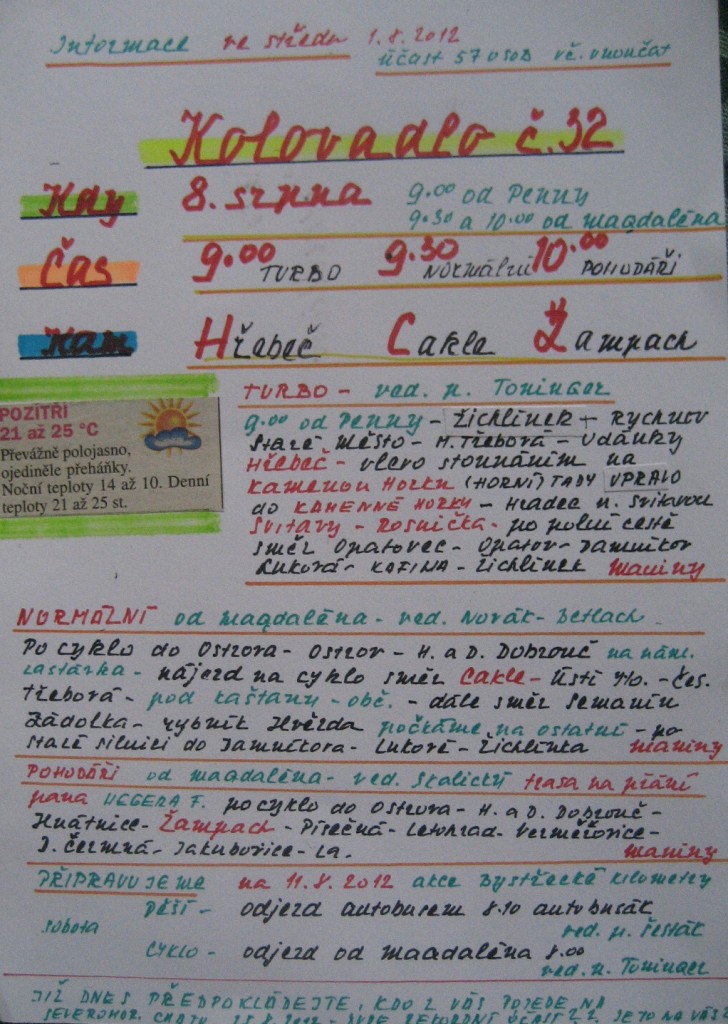 Informace ve středu 1.8.2012
účast 57 osob vč. vnoučat
Kolovadlo č.32
Kdy 8. srpna 9.00 od Penny
9.30 a 10.00 od magdaléna
Čas 9.00 TURBO 9.30 NORMÁLNÍ 10.00 POHODÁŘI
Kam Hřebeč Cakle Žampach
POZÍTŘÍ
21 až 25 °C
Převážně polojasno,
ojediněle přeháňky.
Noční teploty 14 až 10. Denní
teploty 21 až 25 st.
TURBO - ved. p. Toninger
9.00 od Penny - Žichlínek + Rychnov
Staré Město - M. Třebová - Udánky
Hřebeč - vlevo stoupáním na
Kamenou Horku (HORNÍ) TADY VPRAVO
do KAMENNÉ HORKY - Hradec n. Svitavou
Svitavy - Rosnička - po polní cestě
směr Opatovec - Opatov - Damníkov
Luková - - Žichlínek maniny
NORMÁLNÍ od magdaléna - ved. Novák - Betlach
Po cyklo do Ostrova - Ostrov - H. a D. Dobrouč na nám.
zastávka - nájezd na cyklo směr Cakle - Ústí n/o. - Čes.
Třebová - pod kaštany - obč. - dále směr Semanín
Zádolka - rybník Hvězda počkáme na ostatní - po
staré silnici do Damníkova - Lukové - Žichlínka maniny
POHODÁŘI od magdaléna - ved. Skalický trasa na přání
pana UEGERA F. po cyklo do Ostrova - H. a D. Dobrouč -
Hnátnice - Žampach - Písečná - Letohrad - Verměřovice -
D. Čermná - Jakubovice - La. maniny
PŘIPRAVUJEME na 11.8.2012 akce Bystřecké kilometry
Pěší - odjezd autobusem 8.10 autobusák
sobota ved. p. Šesták
Cyklo - odjezd od magdaléna 8.00
ved. p. Toninger
JIŽ DNES PŘEDPOKLÁDEJTE, KDO Z VÁS POJEDE NA
SEVEROMOR. CHATU REKORDNÍ ÚČAST JE TO NA VÁS